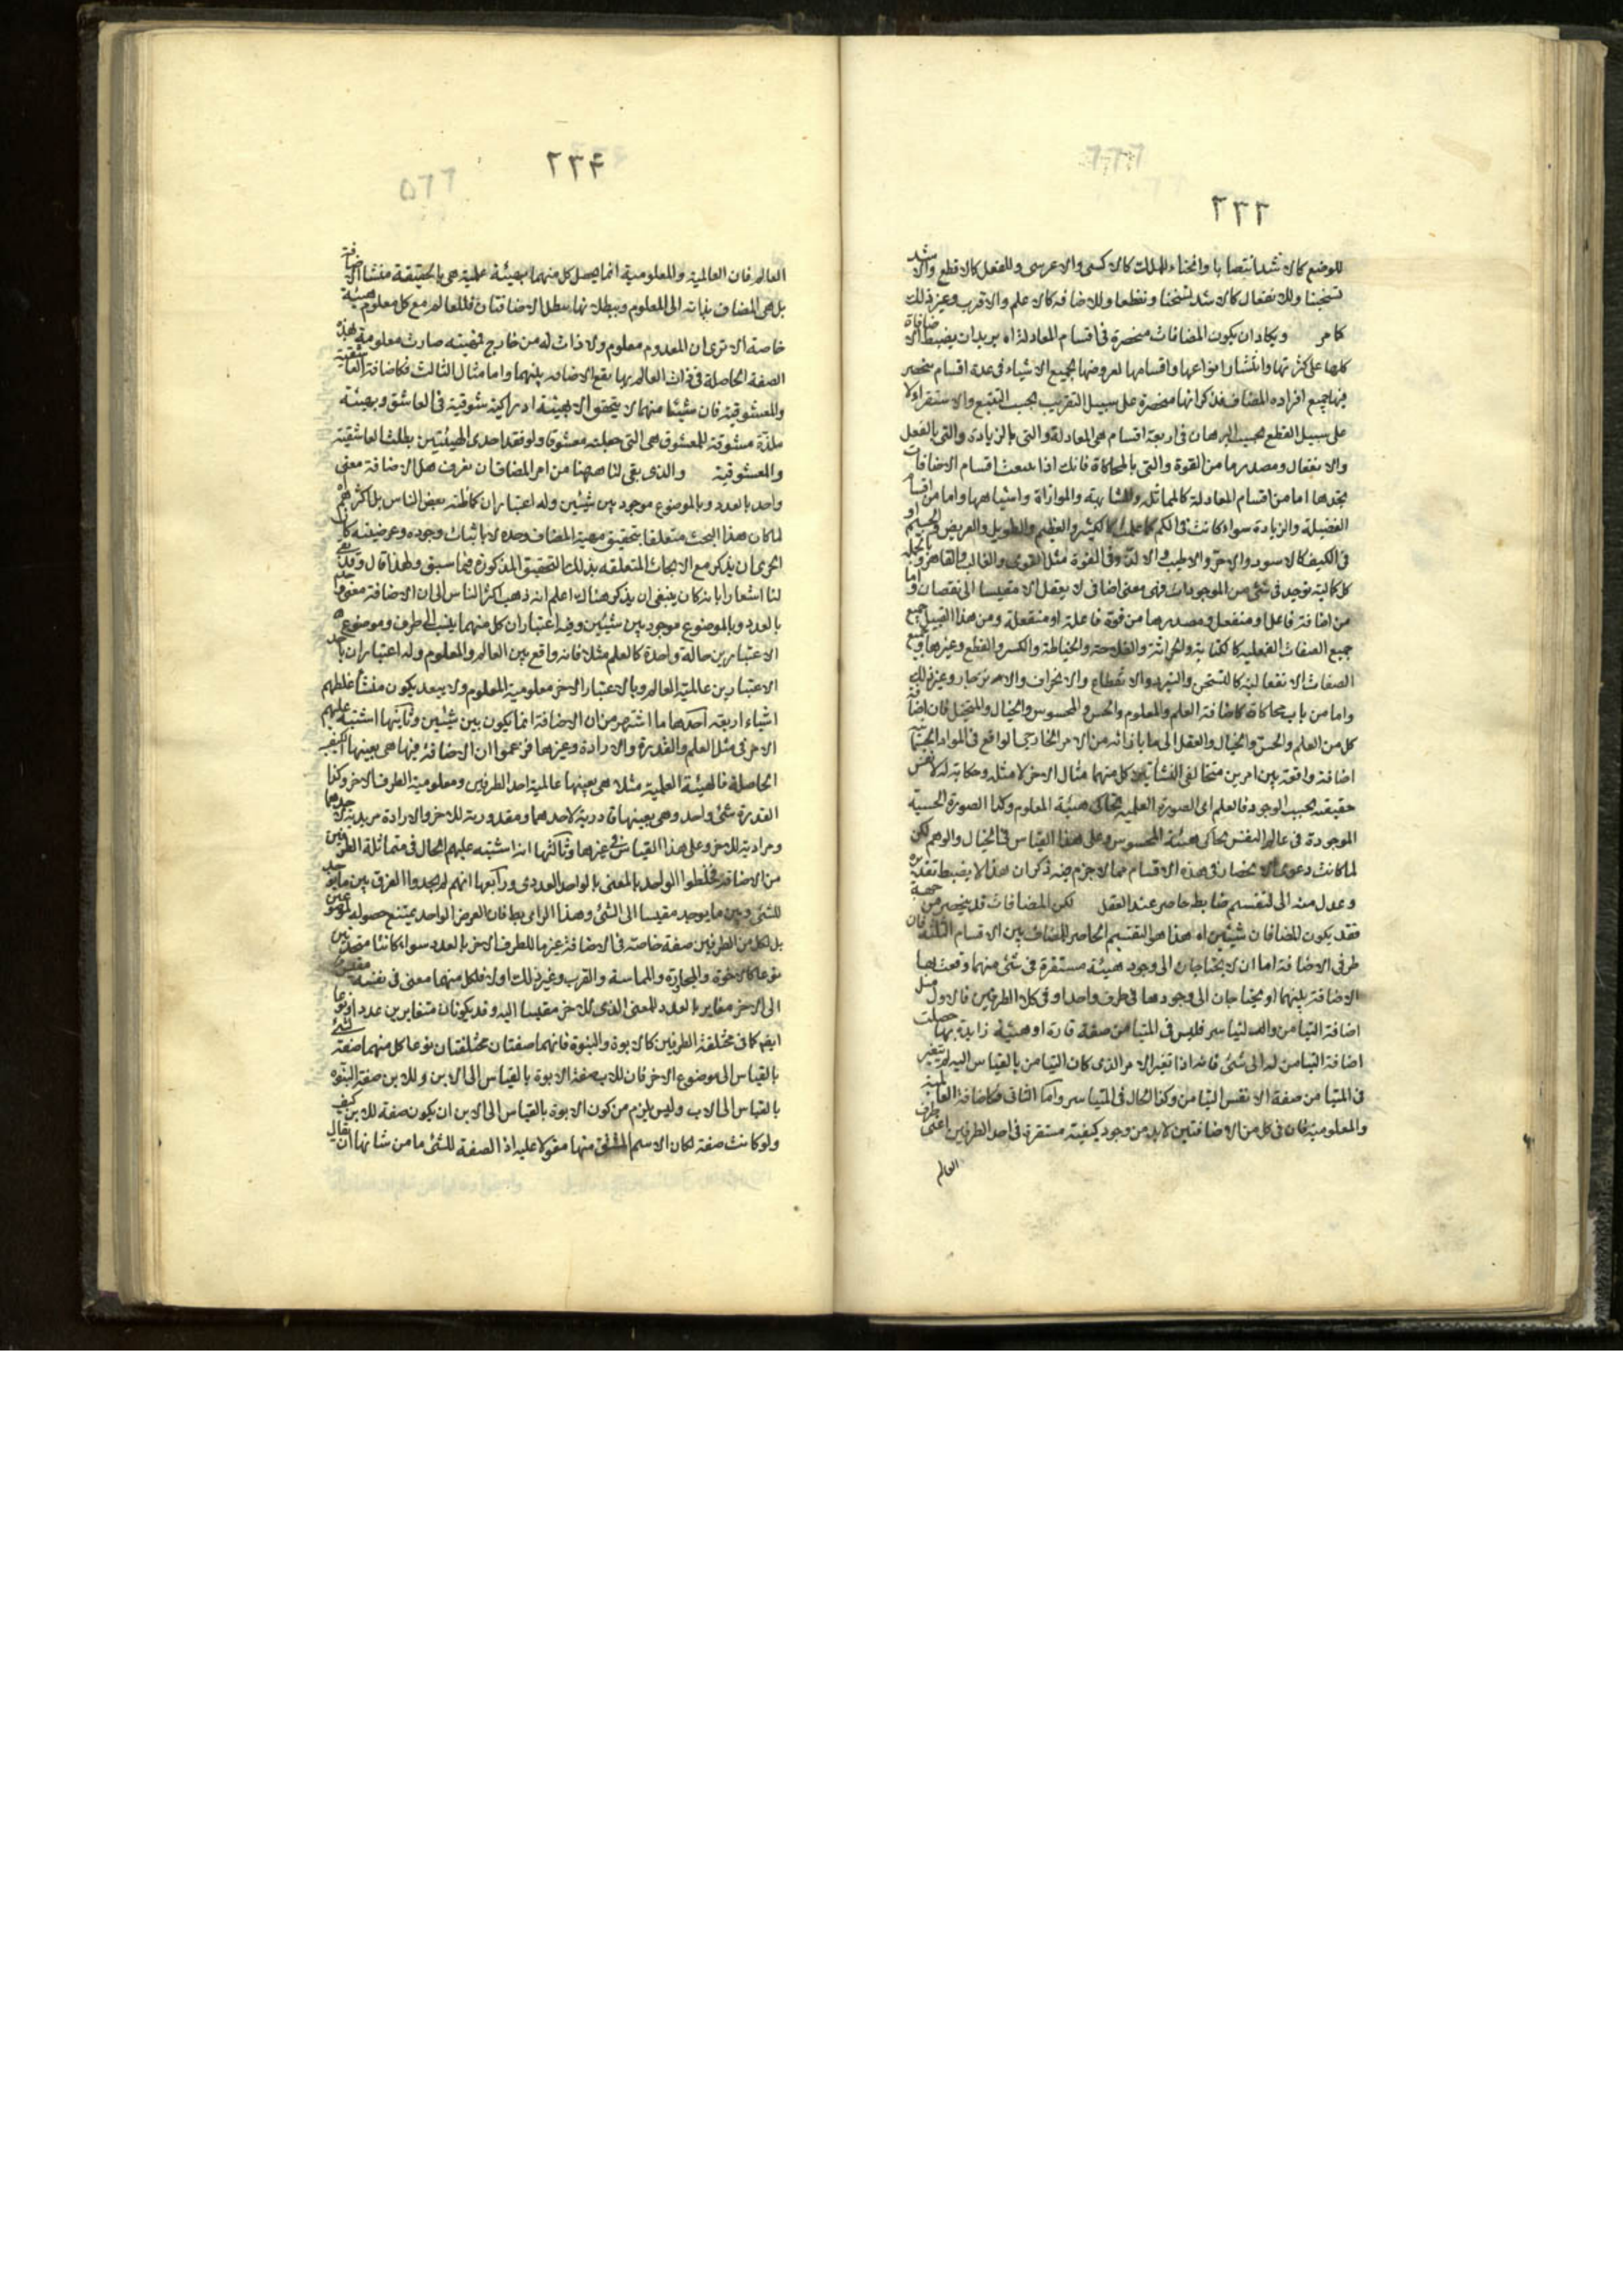 ٢٣٣
للوضع كالاشد انتصابا وانحناء وللملك كالاكسى والاعرى وللفعل كالاقطع والاشد
تسخينا وللانفعال كالاشد تسخنا وتقطعا وللاضافة كالاعلم والاقرب وغير ذلك
كما مر ويكاد ان يكون المضافات منحصرة في اقسام المعادلة اه يريد ان يضبط الاضافات
كلها على كثرتها وانتشار انواعها واقسامها لعروضها لجميع الاشياء في عدة اقسام ينحصر
فيها جميع افراد المضاف فذكر انها منحصرة على سبيل التقريب بحسب التتبع والاستقراء لا
على سبيل القطع بحسب البرهان في اربعة اقسام هي المعادلة والتي بالزيادة والتي بالفعل
والانفعال ومصدرها من القوة والتي بالمحاكاة فانك اذا تتبعت اقسام الاضافات
تجدها اما من اقسام المعادلة كالمماثلة والمشابهة والموازاة واشباهها واما من اقسام
الفضيلة والزيادة سواء كانت في الكم كما علمت كالكثير والعظيم والطويل والعريض والجسيم او
في الكيف كالاسود والاحر والاطيب والالذ وفي القوة مثل القوى والغالب والقاهر وبالجملة
كل كمالية توجد في شئ من الموجودات فهي معنى اضافي لا يعقل الا مقيسا الى نقصان واما
من اضافة فاعل او منفعل ومصدرها من قوة فاعلة او منفعلة ومن هذا القبيل جميع
جميع الصفات الفعلية كالكتابة والحراثة والفلاحة والخياطة والكسر والقطع وغيرها وجميع
الصفات الانفعالية كالتسخن والتبرد والانقطاع والانخراف والانزجار وغير ذلك
واما من باب محاكاة كاضافة العلم والمعلوم والحس والمحسوس والخيال والمتخيل فان اضافة
كل من العلم والحس والخيال والعقل الى ما بازائه من الامر الخارجي الواقع في المواد الجسمانية
اضافة واقعة بين امرين متخالفي النشأتين كل منهما مثال الاخر لا مثله وحكاية له لا نفس
حقيقته بحسب الوجود فالعلم اى الصورة العلمية تحاكي هيئة المعلوم وكذا الصورة الحسية
الموجودة في عالم النفس تحاكي هيئة المحسوس وعلى هذا القياس في الخيال والوهم لكن
لما كانت دعوى الانحصار في هذه الاقسام مما لا جزم فيه ذكر ان هذا لا يضبط تقديره
وعدل منه الى تقسيم ضابط حاصر عند العقل لكن المضافات قد ينحصر من جهة
فقد يكون المضافان شيئين اه هذا هو التقسيم الحاصر للمضاف بين الاقسام الثلثة فان
طرفي الاضافة اما ان لا يحتاجان الى وجود هيئة مستقرة في شئ منهما وقعت بها
الاضافة بينهما او يحتاجان الى وجودها في طرف واحد او في كلا الطرفين فالاول مثل
اضافة التيامن والتياسر فليس في المتيامن صفة قارة او هيئة زايدة بها حصلت
اضافة التيامن له الى شئ فانه اذا تغير الامر الذي كان التيامن بالقياس اليه لم يتغير
في المتيامن صفة الا نفس التيامن وكذا الحال في المتياسر واما الثاني فكاضافة العالمية
والمعلومية فان في كل من الاضافتين لابد من وجود كيفية مستقرة في احد الطرفين اعنى طرف
العالم
٢٣٤
٥٦٦
العالم فان العالمية والمعلومية انما يحصل كل منهما بهيئة علمية هي بالحقيقة منشأ الاضافة
بل هي المضاف بذاته الى المعلوم وببطلانها يبطل الاضافتان فللعالم مع كل معلوم هيئة
خاصة الا ترى ان المعدوم معلوم ولا ذات له من خارج فحيثية صارت معلومة بهذه
الصفة الحاصلة في ذات العالم بها يقع الاضافة بينهما واما مثال الثالث فكاضافة العاشقية
والمعشوقية فان شيئا منهما لا يتحقق الا بهيئة ادراكية شوقية في العاشق وبهيئة
ملذة مشوقة للمعشوق هي التي جعلته معشوقا ولو فقد احدى الهيئتين بطلت العاشقية
والمعشوقية والذي بقي لنا ههنا من امر المضاف ان نعرف هل الاضافة معنى
واحد بالعدد وبالموضوع موجود بين شيئين وله اعتباران كما ظنه بعض الناس بل اكثرهم
لما كان هذا البحث متعلقا بتحقيق مهية المضاف وحده لا باثبات وجوده وعرضيته كان
الحرى ان يذكر مع الابحاث المتعلقة بذلك التحقيق المذكورة فيما سبق ولهذا قال وقد بقى
لنا اشعارا بانه كان ينبغي ان يذكر هناك اعلم انه ذهب اكثر الناس الى ان الاضافة معنى واحد
بالعدد وبالموضوع موجود بين شيئين وفيه اعتباران كل منهما ينسب الى طرف وموضوع هما
الاعتبارين حالة واحدة كالعلم مثلا فانه واقع بين العالم والمعلوم وله اعتباران باحد
الاعتبارين عالمية العالم وبالاعتبار الاخر معلومية المعلوم ولا يبعد يكون منشأ غلطهم
اشياء اربعة احدها ما اشتهر من ان الاضافة انما يكون بين شيئين وثانيها اشتبه عليهم
الامر في مثل العلم والقدرة والارادة وغيرها فزعموا ان الاضافة فيها هي بعينها الكيفية
الحاصلة فالهيئة العلمية مثلا هي بعينها عالمية احد الطرفين ومعلومية الطرف الاخر وكذا
القدرة شئ واحد وهي بعينها قادرية لاحدهما ومقدورية للاخر والارادة مريدية لاحدهما
ومرادية للاخر وعلى هذا القياس في غيرها وثالثها انه اشتبه عليهم الحال في متماثلة الطرفين
من الاضافة فخلطوا الواحد بالمعنى بالواحد العددى ورابعها انهم لم يجدوا الفرق بين ما يوجد
للشئ وبين ما يوجد مقيسا الى الشئ وهذا الراى بط فان العرض الواحد يمتنع حصوله لموضوعين
بل لكل من الطرفين صفة خاصة في الاضافة غير ما للطرف الاخر بالعدد سواء كانتا متحدتين
نوعا كالاخوة والمجاورة والمماسة والقرب وغير ذلك اولا فلكل منهما معنى في نفسه مقيس
الى الاخر مغاير بالعدد للمعنى الذى للاخر مقيسا اليه وقد يكونان متغايرين عددا ونوعا
ايضا كما في مختلفة الطرفين كالابوة والبنوة فانهما صفتان مختلفتان نوعا كل منهما صفة لشئ
بالقياس الى موضوع الاخر فان للاب صفة الابوة بالقياس الى الابن وللابن صفة البنوة
بالقياس الى الاب وليس يلزم من كون الابوة بالقياس الى الابن ان يكون صفة للابن كيف
ولو كانت صفة لكان الاسم المشتق منها مقولا عليه اذ الصفة للشئ ما من شانها ان يقال